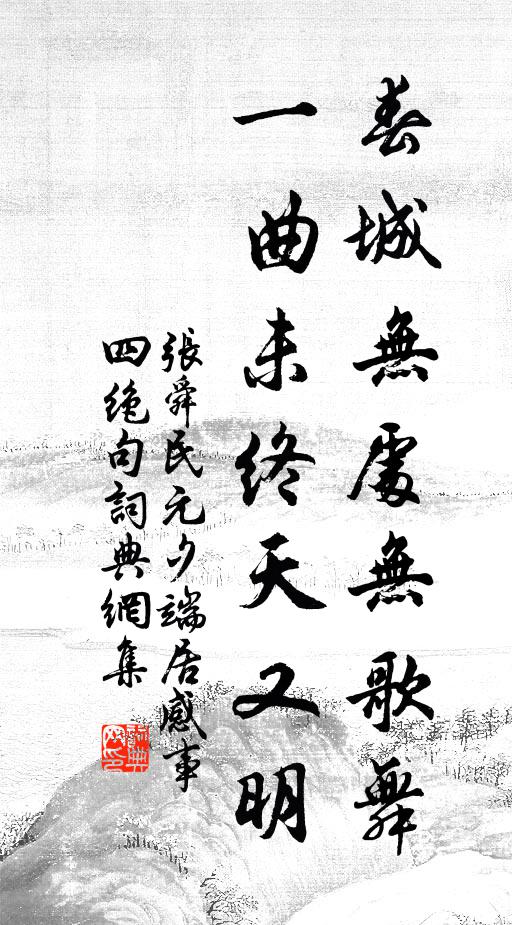 春城無處無歌舞
一曲未終天又明
張舜民元夕端居感事
四絕句詞典網集